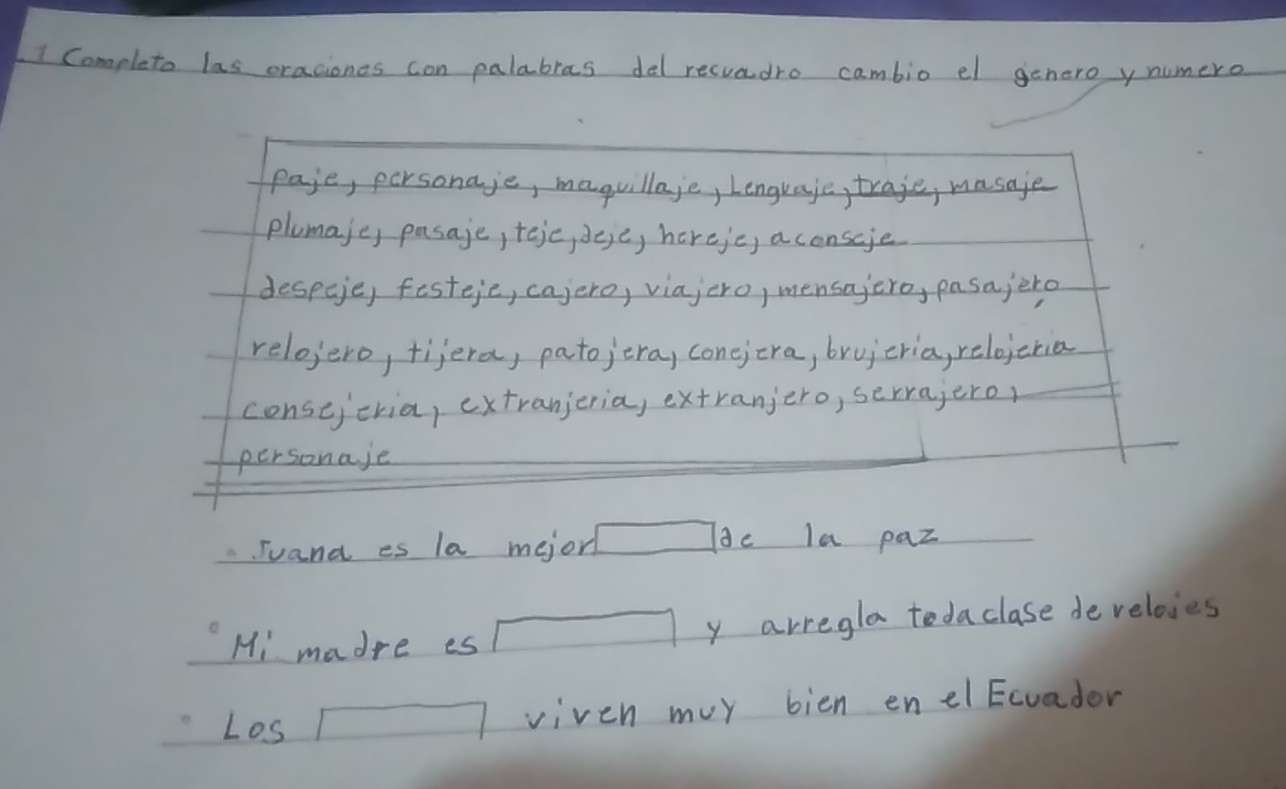 1 Completo las oraciones con palabras del recuadro cambio el genero y numero
paje, personaje, maquillaje, Lenguaje, traje, masaje
plumaje, pasaje, teje, deje, hereje, aconseje
despeje, festeje, cajero, viajero, mensajero, pasajero
relojero, tijera, patojera, conejera, brujeria, relojeria
consejeria, extranjeria, extranjero, serrajero,
personaje
Juana es la mejor de la paz
Mi madre es y arregla toda clase de relojes
Los viven muy bien en el Ecuador